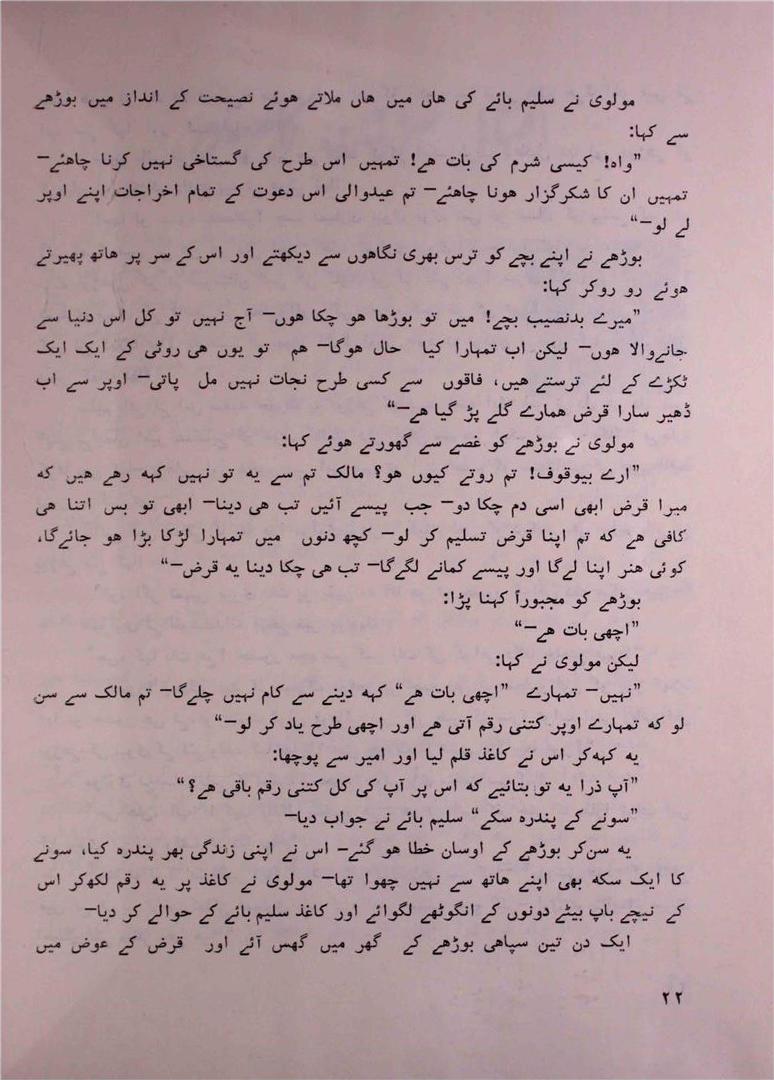 مولوی نے سلیم بائے کی هاں میں هاں ملاتے هوئے نصیحت کے انداز میں بوڑھے
سے کہا:
”واه! کیسی شرم کی بات هے! تمہیں اس طرح کی گستاخی نہیں کرنا چاهئے—
تمہیں ان کا شکرگزار هونا چاهئے— تم عیدوالی اس دعوت کے تمام اخراجات اپنے اوپر
لے لو—“
بوڑھے نے اپنے بچے کو ترس بھری نگاهوں سے دیکھتے اور اس کے سر پر هاتھ پھیرتے
هوئے رو روکر کہا:
”میرے بدنصیب بچے! میں تو بوڑھا هو چکا هوں— آج نہیں تو کل اس دنیا سے
جانےوالا هوں— لیکن اب تمہارا کیا حال هوگا— هم تو یوں هی روٹی کے ایک ایک
ٹکڑے کے لئے ترستے هیں، فاقوں سے کسی طرح نجات نہیں مل پاتی— اوپر سے اب
ڈھیر سارا قرض همارے گلے پڑ گیا هے—“
مولوی نے بوڑھے کو غصے سے گھورتے هوئے کہا:
”ارے بیوقوف! تم روتے کیوں هو؟ مالک تم سے یه تو نہیں کہه رهے هیں که
میرا قرض ابھی اسی دم چکا دو— جب پیسے آئیں تب هی دینا— ابھی تو بس اتنا هی
کافی هے که تم اپنا قرض تسلیم کر لو— کچھ دنوں میں تمہارا لڑکا بڑا هو جائےگا،
کوئی هنر اپنا لےگا اور پیسے کمانے لگےگا— تب هی چکا دینا یه قرض—“
بوڑھے کو مجبوراً کہنا پڑا:
”اچھی بات هے—“
لیکن مولوی نے کہا:
”نہیں— تمہارے ”اچھی بات هے“ کہه دینے سے کام نہیں چلےگا— تم مالک سے سن
لو که تمہارے اوپر کتنی رقم آتی هے اور اچھی طرح یاد کر لو—“
یه کہه‌کر اس نے کاغذ قلم لیا اور امیر سے پوچھا:
”آپ ذرا یه تو بتائیے که اس پر آپ کی کل کتنی رقم باقی هے؟“
”سونے کے پندره سکے“ سلیم بائے نے جواب دیا—
یه سن‌کر بوڑھے کے اوسان خطا هو گئے— اس نے اپنی زندگی بھر پندره کیا، سونے
کا ایک سکه بھی اپنے هاتھ سے نہیں چھوا تھا— مولوی نے کاغذ پر یه رقم لکھ‌کر اس
کے نیچے باپ بیٹے دونوں کے انگوٹھے لگوائے اور کاغذ سلیم بائے کے حوالے کر دیا—
ایک دن تین سپاهی بوڑھے کے گھر میں گھس آئے اور قرض کے عوض میں
۲۲